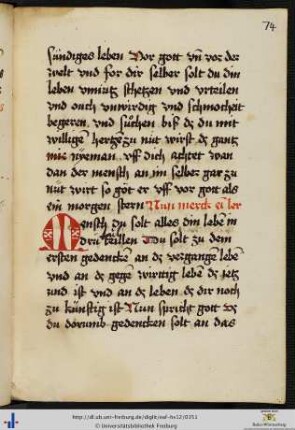 74
sündiges leben Vor gott vn̄ vor der
welt vnd for dir selber solt du din
leben vnnütz schetzen vnd vrteilen
vnd ouch vnwirdig vnd schmocheit
begeren vnd sůchen biß dz du mit
willigem hertzē zu nüt wirst dz gantz
nie nyeman vff dich achtet wan
dan der mensch an im selber gar zu
nüt wirt so got er vff vor gott als
ein morgen stern Nun merck ei ler
Mensch du solt alles din lebē in
drü teillen Du solt zu dem
ersten gedencken an dz vergange lebē
vnd an dz gegē wirttig lebē dz jetz
vnd ist vnd an dz leben dz dir noch
zu künftig ist Nun spricht gott dz
du dorumb gedencken solt an das
http://dl.ub.uni-freiburg.de/diglit/oaf-hs12/0151
© Universitätsbibliothek Freiburg
Baden-Württemberg